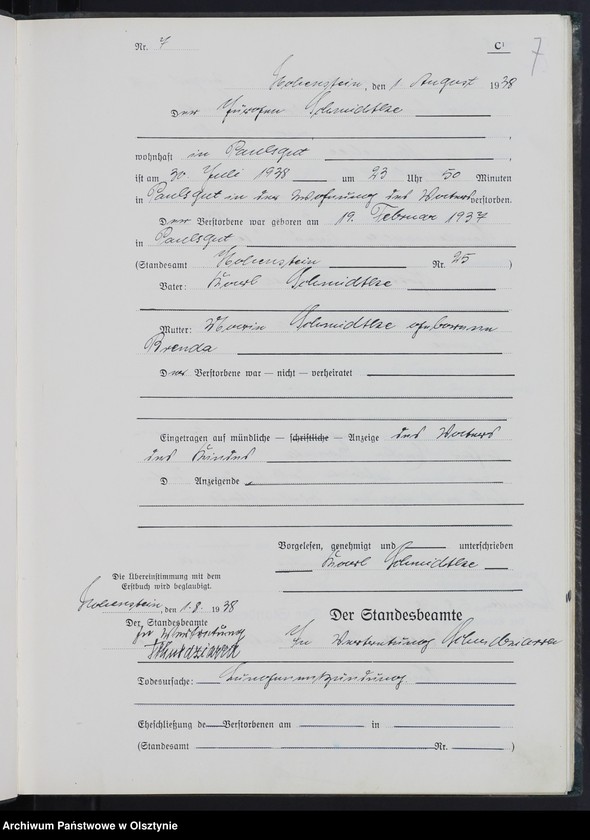 Nr. 7 C¹ 7
Hohenstein, den 1. August 1938
Der Jürgen Schmidtke
wohnhaft in Paulsgut
ist am 30. Juli 1938 um 23 Uhr 50 Minuten
in Paulsgut in der Wohnung des Vaters verstorben.
Der Verstorbene war geboren am 19. Februar 1937
in Paulsgut
(Standesamt Hohenstein Nr. 25)
Vater: Karl Schmidtke
Mutter: Marie Schmidtke geborene
Brenda
Der Verstorbene war — nicht — verheiratet
Eingetragen auf mündliche — schriftliche — Anzeige des Vaters
des Kindes
D Anzeigende
Vorgelesen, genehmigt und unterschrieben
Karl Schmidtke
Die Übereinstimmung mit dem
Erstbuch wird beglaubigt.
Hohenstein, den 1.8. 1938
Der Standesbeamte
In Vertretung
Der Standesbeamte
In Vertretung
Todesursache: Lungenentzündung
Eheschließung de Verstorbenen am in
(Standesamt Nr. )
Archiwum Państwowe w Olsztynie